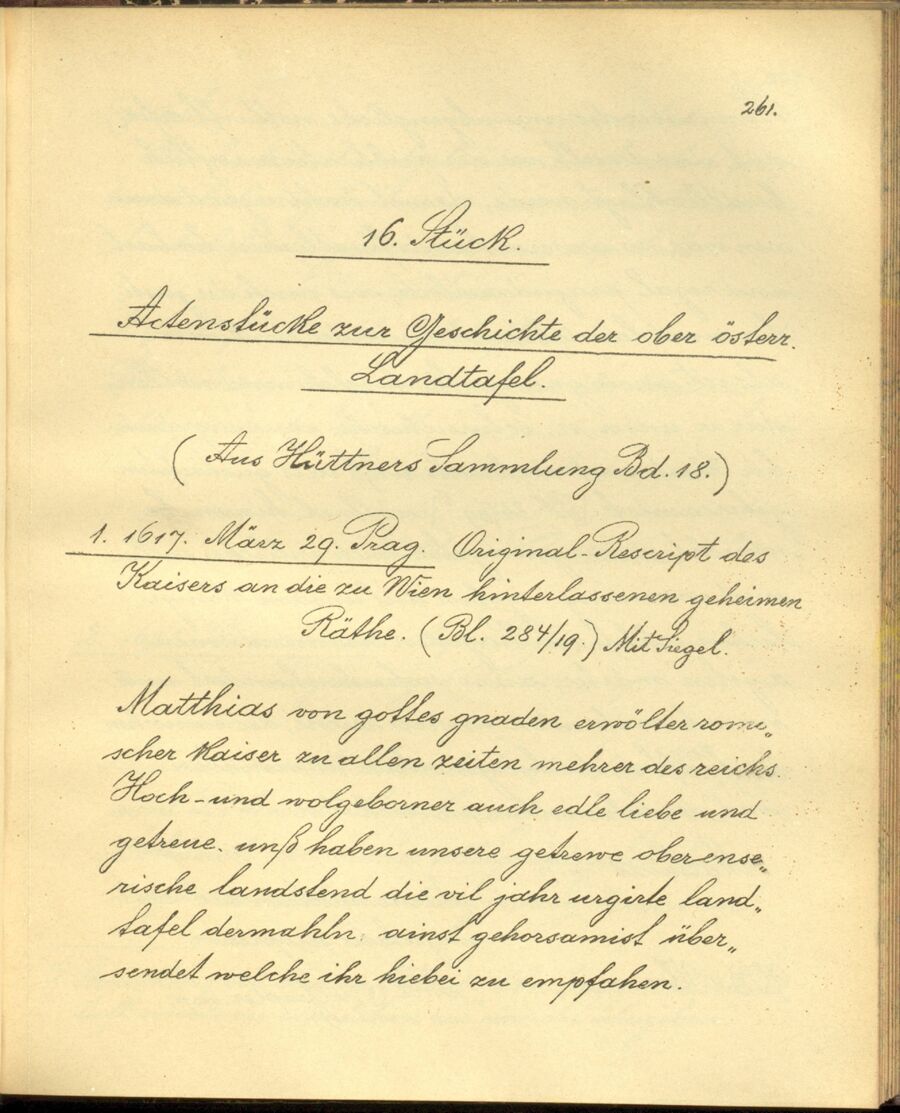 261.
16. Stück.
Actenstücke zur Geschichte der ober österr.
Landtafel.
(Aus Hüttners Sammlung Bd. 18.)
1. 1617. März 29. Prag. Original-Rescript des
Kaisers an die zu Wien hinterlassenen geheimen
Räthe. (Bl. 284/19.) Mit Siegel.
Matthias von gottes gnaden erwölter romi„
scher Kaiser zu allen zeiten mehrer des reichs.
Hoch-und wolgeborner auch edle liebe und
getreue. unß haben unsere getrewe oberense„
rische landstend die vil jahr urgirte land„
tafel dermahln ainst gehorsamist über„
sendet welche ihr hiebei zu empfahen.